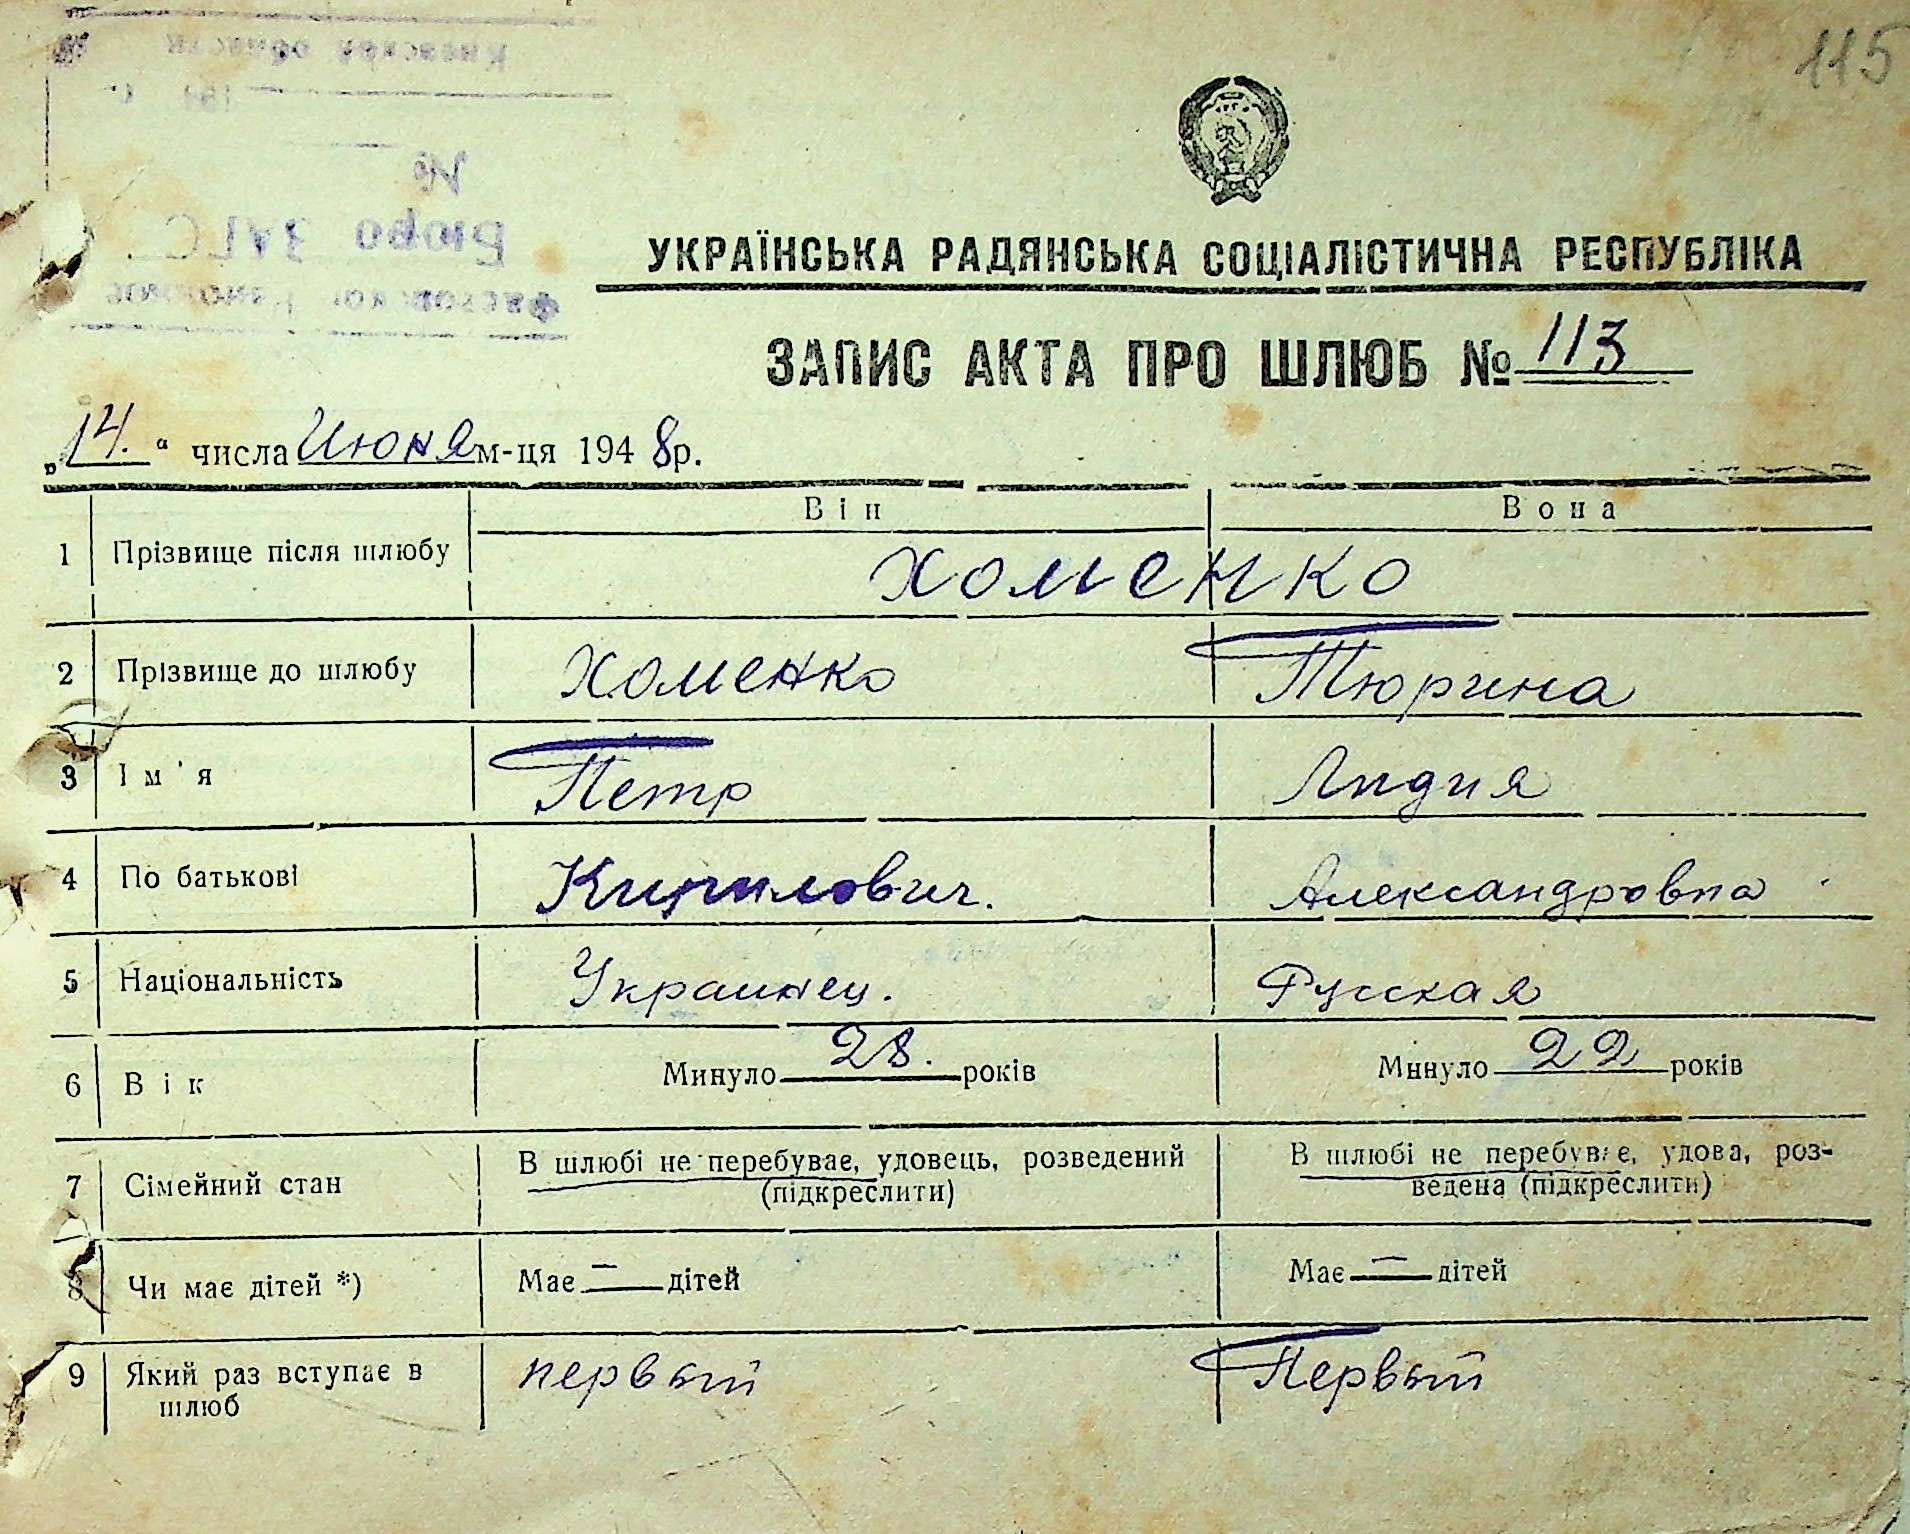 115
УКРАЇНСЬКА РАДЯНСЬКА СОЦІАЛІСТИЧНА РЕСПУБЛІКА
ЗАПИС АКТА ПРО ШЛЮБ № 113
„14.“ числа Июня м-ця 1948 р.
Він Вона
1 Прізвище після шлюбу Хоменко
2 Прізвище до шлюбу Хоменко Тюрина
3 Ім'я Петр Лидия
4 По батькові Кирилович. Александровна
5 Національність Украинец. Русская
6 Вік Минуло 28. років Минуло 22 років
7 Сімейний стан В шлюбі не перебуває, удовець, розведений (підкреслити) В шлюбі не перебуває, удова, роз-
ведена (підкреслити)
8 Чи має дітей *) Має — дітей Має — дітей
9 Який раз вступає в первый Первый
шлюб